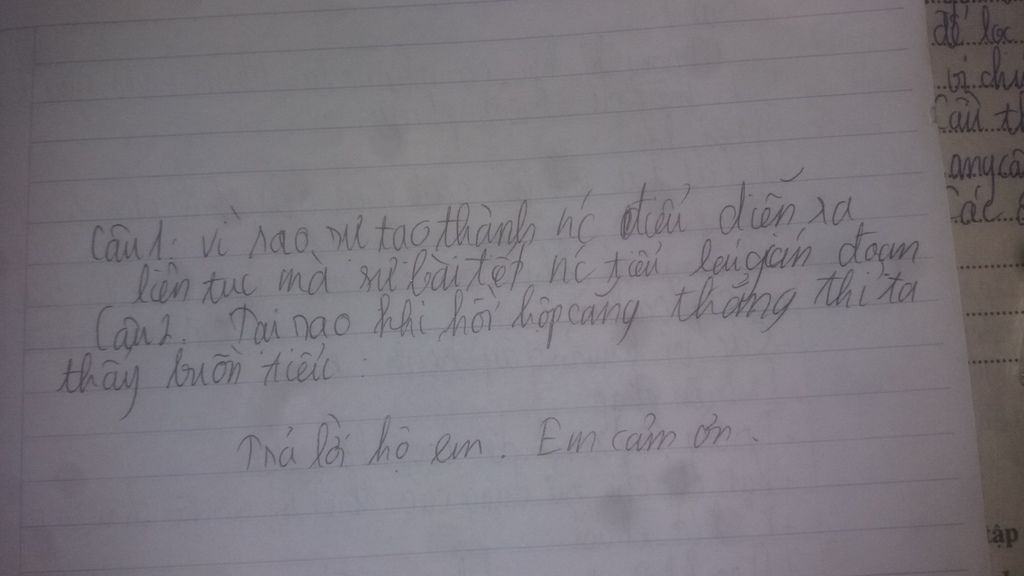 Câu 1: vì sao sự tạo thành nc tiểu diễn ra
liên tục mà sự bài tết nc tiểu lại gián đoạn
Câu 2. Tại sao khi hồi hộp căng thẳng thì ta
thấy buồn tiểu.
Trả lời hộ em. Em cảm ơn.
để lọc
vị chứ
Cầu th
ang cầ
Các
tập